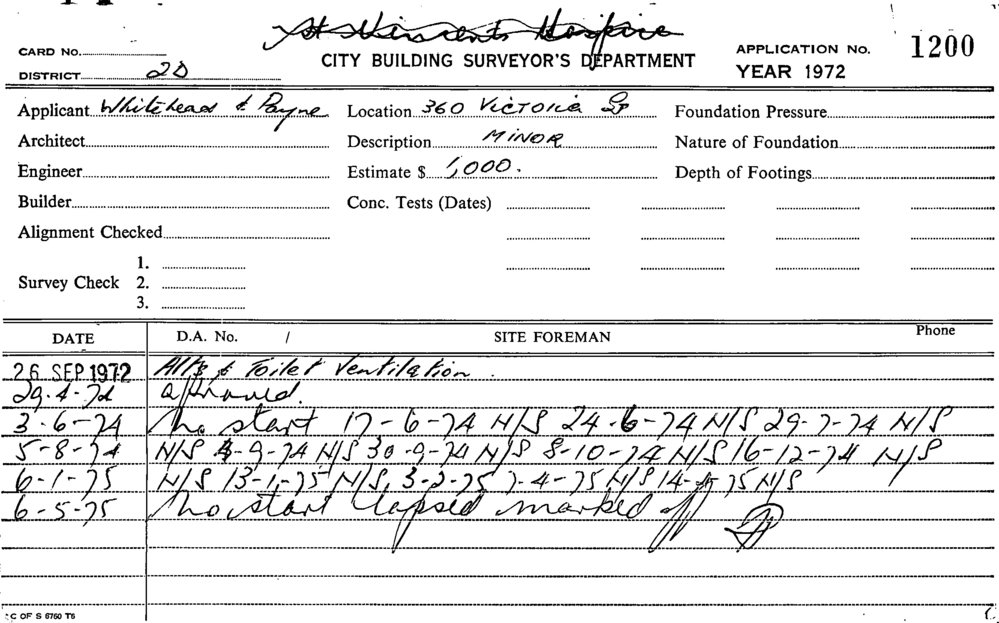 St Vincents Hospice
CARD No.
CITY BUILDING SURVEYOR'S DEPARTMENT
APPLICATION No. 1200
DISTRICT 2D
YEAR 1972
Applicant Whitehead & Payne Location 360 Victoria St Foundation Pressure
Architect Description MINOR Nature of Foundation
Engineer Estimate $ 1,000. Depth of Footings
Builder Conc. Tests (Dates)
Alignment Checked
Survey Check 1.
2.
3.
DATE D.A. No. / SITE FOREMAN Phone
26 SEP 1972 Alts & Toilet Ventilation.
29.4-72 approved.
3-6-74 No start 17-6-74 N/S 24-6-74 N/S 29-7-74 N/S
5-8-74 N/S 4-9-74 N/S 30-9-74 N/S 8-10-74 N/S 16-12-74 N/S
6-1-75 N/S 13-1-75 N/S, 3-2-75 7-4-75 N/S 14-4-75 N/S
6-5-75 No start lapsed marked off
C OF S 6760 T6